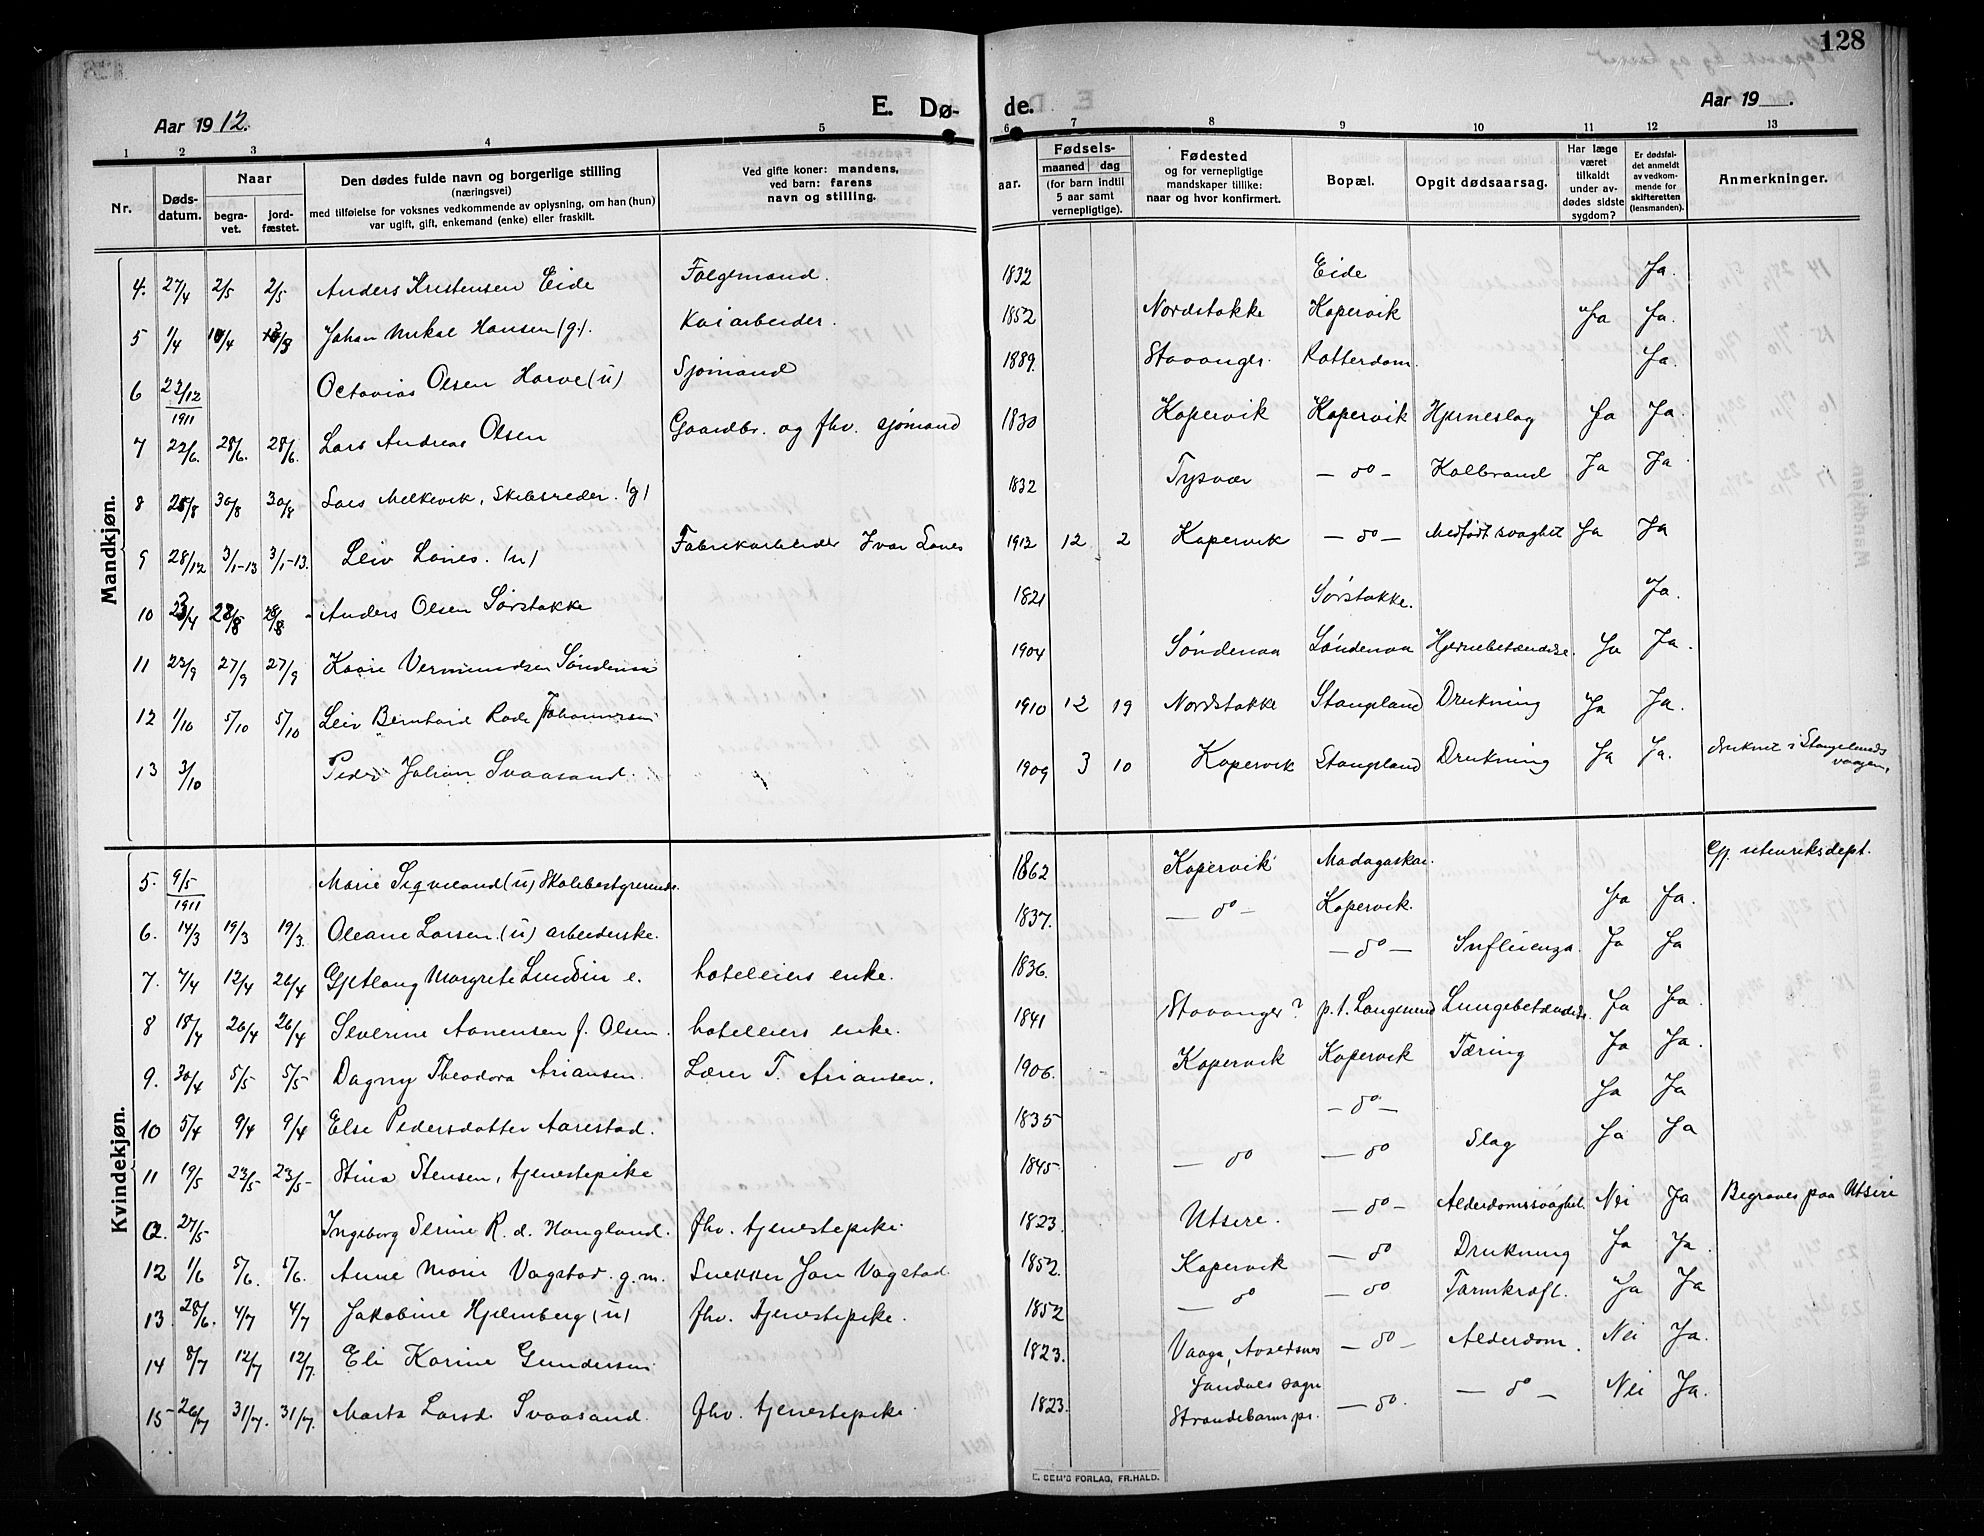 128
E. Dø- de.
Aar 1912.
Aar 19 .
1 2 3 4 5 6 7 8 9 10 11 12 13
Nr.
Døds-
datum.
Naar
begra-
vet.
jord-
fæstet.
Den dødes fulde navn og borgerlige stilling
(næringsvei)
med tilføielse for voksnes vedkommende av oplysning, om han (hun)
var ugift, gift, enkemand (enke) eller fraskilt.
Ved gifte koner: mandens,
ved barn: farens
navn og stilling.
Fødsels-
aar.
maaned dag
(for barn indtil
5 aar samt
vernepligtige).
Fødested
og for vernepligtige
mandskaper tillike:
naar og hvor konfirmert.
Bopæl.
Opgit dødsaarsag.
Har læge
været
tilkaldt
under av-
dødes sidste
sygdom?
Er dødsfal-
det anmeldt
av vedkom-
mende for
skifteretten
(lensmanden).
Anmerkninger.
Mandkjøn.
4. 27/4 2/5 2/5 Anders Kristensen Eide Følgemand. 1832 Eide Ja.
5 1/4 10/4 Johan Mikal Hansen (g). Kaiarbeider. 1852 Nordstokke Kopervik Ja Ja.
6 23/12 1911 Octavius Olsen Harve (u) Sjømand 1889. Stavanger. Rotterdam. Ja.
7 22/6. 28/6. 28/6. Lars Andreas Olsen Gaardbr. og fhv. sjømand 1830 Kopervik Kopervik Hjerneslag Ja Ja.
8 25/8 30/8 30/8 Lars Melkevik, Skibsreder. (g) 1832 Tysvær — do — Kolbrand Ja Ja
9 28/12 3/1-13 3/1-13. Leiv Lones. (u) Fabrikarbeider Ivar Lones 1912 12 2 Kopervik — do — Medfødt svaghet Ja Ja
10 23/4 28/8 28/8 Anders Olsen Sørstokke 1821 Sørstokke. Ja.
11 23/9 27/9 27/9 Kaare Vermundsen Søndenaa 1904 Søndenaa Søndenaa Hjernebetændelse. Ja Ja.
12 1/10 5/10 5/10 Leiv Bernhard Rode Johannessen 1910 12 19 Nordstokke Stangeland Drukning Ja Ja.
13 3/10 Peder Johan Svaasand. 1909 3 10 Kopervik Stangeland Drukning Ja Ja. druknet i Stangelands
vaagen.
Kvindekjøn.
5. 9/5 1911 Marie Sigveland (u) Skolebestyrerinde. 1862 Kopervik Madagaskar. Gj. utenriksdept.
6. 14/3 19/3 19/3. Oleane Larsen. (u) arbeiderske. 1837. — do — Kopervik. Ja Ja.
7. 7/4 12/4 26/4 Gjetlaug Margrete Lundin e. hoteleiers enke. 1836. — do — Influenza. Ja Ja
8 18/4 26/4 26/4 Severine Aanensen f. Olsen. hoteleiers enke. 1841 Stavanger? p.t. Langesund Lungebetændelse. Ja Ja.
9. 30/4 5/5 5/5 Dagny Theodora Ariansen. Lærer T. Ariansen. 1906. Kopervik Kopervik Tæring Ja Ja.
10 5/4 9/4 9/4 Else Pedersdatter Aarestad. 1835 — do — Ja Ja
11 19/5 23/5 23/5 Stina Stensen, tjenestepike 1845 — do — do Slag Ja Ja
a. 27/5 Ingeborg Serine R. d. Haugland. fhv. tjenestepike. 1823. Utsire. — do — Alderdomssvaghet. Nei Ja Begraves paa Utsire
12 1/6 5/6. 5/6. Anne Marie Vagstad. g.m. Snekker Jan Vagstad 1852. Kopervik — do Drukning Ja Ja.
13. 28/6. 4/7 4/7 Jakobine Hjelmberg (u) fhv. tjenestepike. 1852 — do — do Tarmkræft. Ja Ja
14 8/7 12/7 12/7. Eli Karine Gundersen 1823. Vaaga, Avaldsnes — do — Alderdom. Nei Ja.
15 26/7 31/7. 31/7. Marta Larsd. Svaasand. fhv. tjenestepike. 1823. Jondals sogn
Strandebarms pr. — do. — do — Nei Ja.
E. SEM'S FORLAG, FR.HALD.